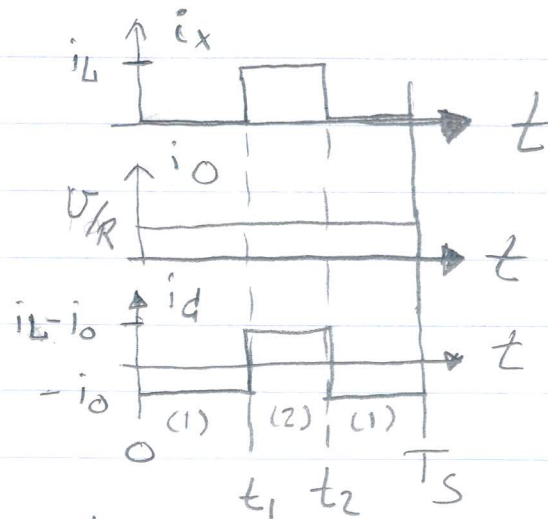 i_x
i_L
t
i_o
U/R
t
i_d
i_L-i_o
t
-i_o
(1) (2) (1)
0 t_1 t_2 T_S